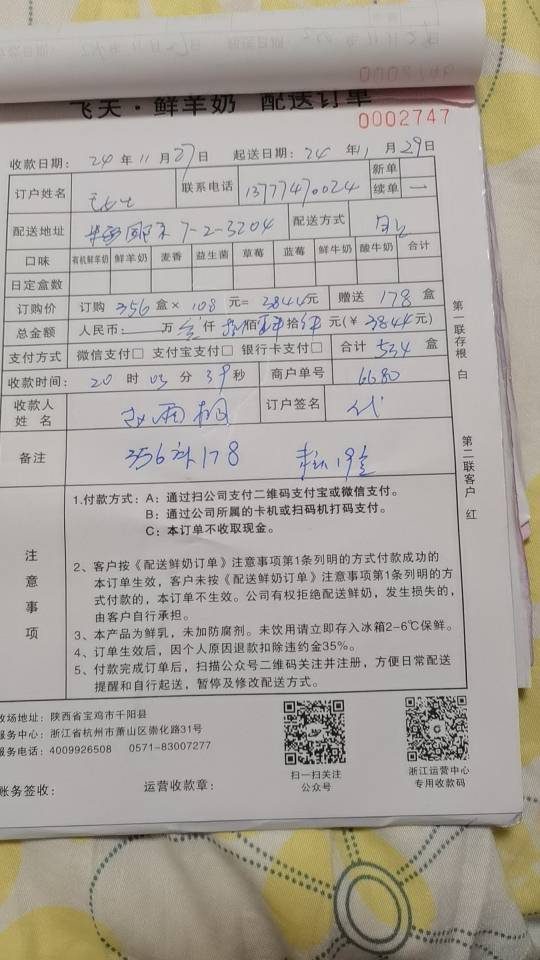 飞天·鲜羊奶 配送订单
0002747
收款日期: 24 年 11 月 27 日 起送日期: 24 年 11 月 29 日
订户姓名 联系电话 13777470024 新单
续单 一
配送地址 7-2-3204 配送方式
口味 有机鲜羊奶 鲜羊奶 麦香 益生菌 草莓 蓝莓 鲜牛奶 酸牛奶 合计
日定盒数
订购价 订购 356 盒× 108 元= 3844元 赠送 178 盒
总金额 人民币: 万 仟 佰 拾 元(¥ 3844 元)
支付方式 微信支付□ 支付宝支付□ 银行卡支付□ 合计 534 盒
收款时间: 20 时 03 分 39 秒 商户单号 6680
收款人姓名 订户签名 代
备注 356 178
第一联存根 白
第二联客户 红
注意事项
1.付款方式: A: 通过扫公司支付二维码支付宝或微信支付。
B: 通过公司所属的卡机或扫码机打码支付。
C: 本订单不收取现金。
2、客户按《配送鲜奶订单》注意事项第1条列明的方式付款成功的
本订单生效，客户未按《配送鲜奶订单》注意事项第1条列明的方
式付款的，本订单不生效。公司有权拒绝配送鲜奶，发生损失的，
由客户自行承担。
3、本产品为鲜乳，未加防腐剂。未饮用请立即存入冰箱2-6℃保鲜。
4、订单生效后，因个人原因退款扣除违约金35%。
5、付款完成订单后，扫描公众号二维码关注并注册，方便日常配送
提醒和自行起送，暂停及修改配送方式。
牧场地址: 陕西省宝鸡市千阳县
服务中心: 浙江省杭州市萧山区崇化路31号
服务电话: 4009926508 0571-83007277
扫一扫关注
公众号
浙江运营中心
专用收款码
账务签收: 运营收款章: